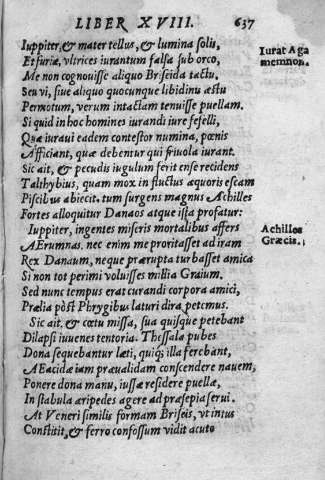 LIBER XVIII. 637
Iuppiter, & mater tellus, & lumina solis,
Et furiæ, vltrices iurantum falsa sub orco,
Iurat Aga
memnon.
Me non cognouisse aliquo Briseida tactu,
Seu vi, siue aliquo quocunque libidinis æstu
Permotum, verum intactam tenuisse puellam.
Si quid in hoc homines iurandi iure fefelli,
Quæ iuraui eadem contestor numina, pœnis
Afficiant, quæ debentur qui friuola iurant.
Sic ait, & pecudis iugulum ferit ense recidens
Talthybius, quam mox in fluctus æquoris escam
Piscibus abiecit. tum surgens magnus Achilles
Fortes alloquitur Danaos atque ista profatur:
Iuppiter, ingentes miseris mortalibus affers
Achilles
Græcis.
AErumnas. nec enim me proritasset ad iram
Rex Danaum, neque prærupta turbasset amica
Si non tot perimi voluisses millia Graium.
Sed nunc tempus erat curandi corpora amici,
Prælia pòst Phrygibus laturi dira petemus.
Sic ait. & cœtu missa, sua quisque petebant
Dilapsi iuuenes tentoria. Thessala pubes
Dona sequebantur læti, quiq; illa ferebant,
AEacidæ iam præualidam conscendere nauem,
Ponere dona manu, iussæ residere puellæ,
In stabula æripedes agere ad præsepia serui.
At Veneri similis formam Briseis, vt intus
Constitit, & ferro confossum vidit acuto